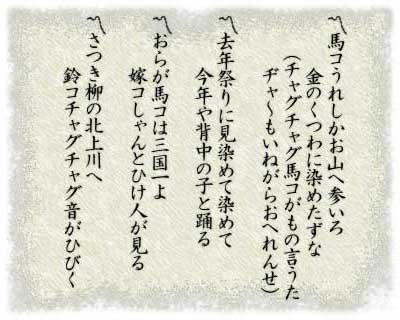 〽馬コうれしかお山へ参いろ
金のくつわに染めたずな
(チャグチャグ馬コがもの言うた
ヂャ〜もいねがらおへれんせ)
〽去年祭りに見染めて染めて
今年や背中の子と踊る
〽おらが馬コは三国一よ
嫁コしゃんとひけ人が見る
〽さつき柳の北上川へ
鈴コチャグチャグ音がひびく